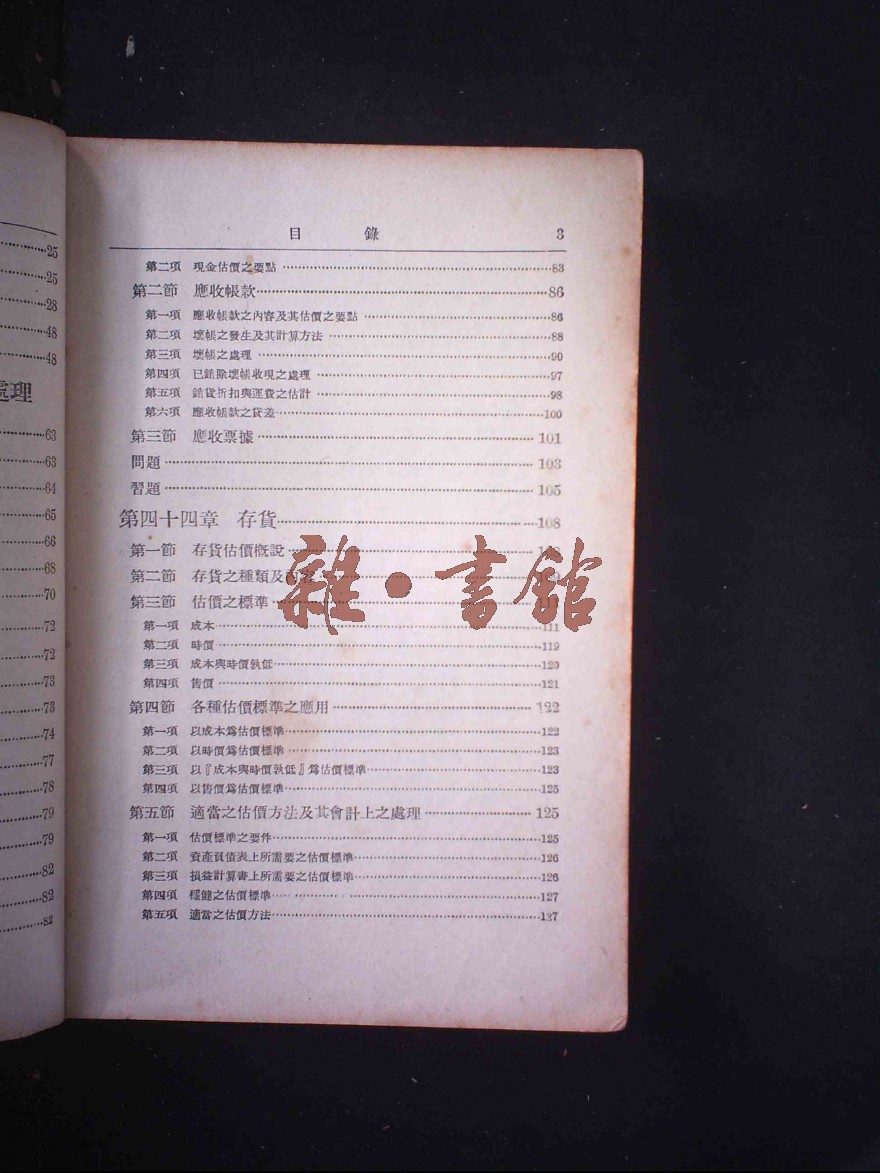 25
25
28
48
48
處理
63
63
64
65
66
68
70
72
72
73
73
74
77
78
79
79
82
82
82
目錄 3
第二項 現金估價之要點 83
第二節 應收帳款 86
第一項 應收帳款之內容及其估價之要點 86
第二項 壞帳之發生及其計算方法 88
第三項 壞帳之處理 90
第四項 已銷除壞帳收現之處理 97
第五項 銷貨折扣與運費之估計 98
第六項 應收帳款之貸差 100
第三節 應收票據 101
問題 103
習題 105
第四十四章 存貨 108
第一節 存貨估價概說
第二節 存貨之種類及內容
第三節 估價之標準
第一項 成本 111
第二項 時價 119
第三項 成本與時價孰低 120
第四項 售價 121
第四節 各種估價標準之應用 122
第一項 以成本爲估價標準 122
第二項 以時價爲估價標準 123
第三項 以『成本與時價孰低』爲估價標準 123
第四項 以售價爲估價標準 125
第五節 適當之估價方法及其會計上之處理 125
第一項 估價標準之要件 125
第二項 資產負債表上所需要之估價標準 126
第三項 損益計算書上所需要之估價標準 126
第四項 穩健之估價標準 127
第五項 適當之估價方法 127
雜·書館